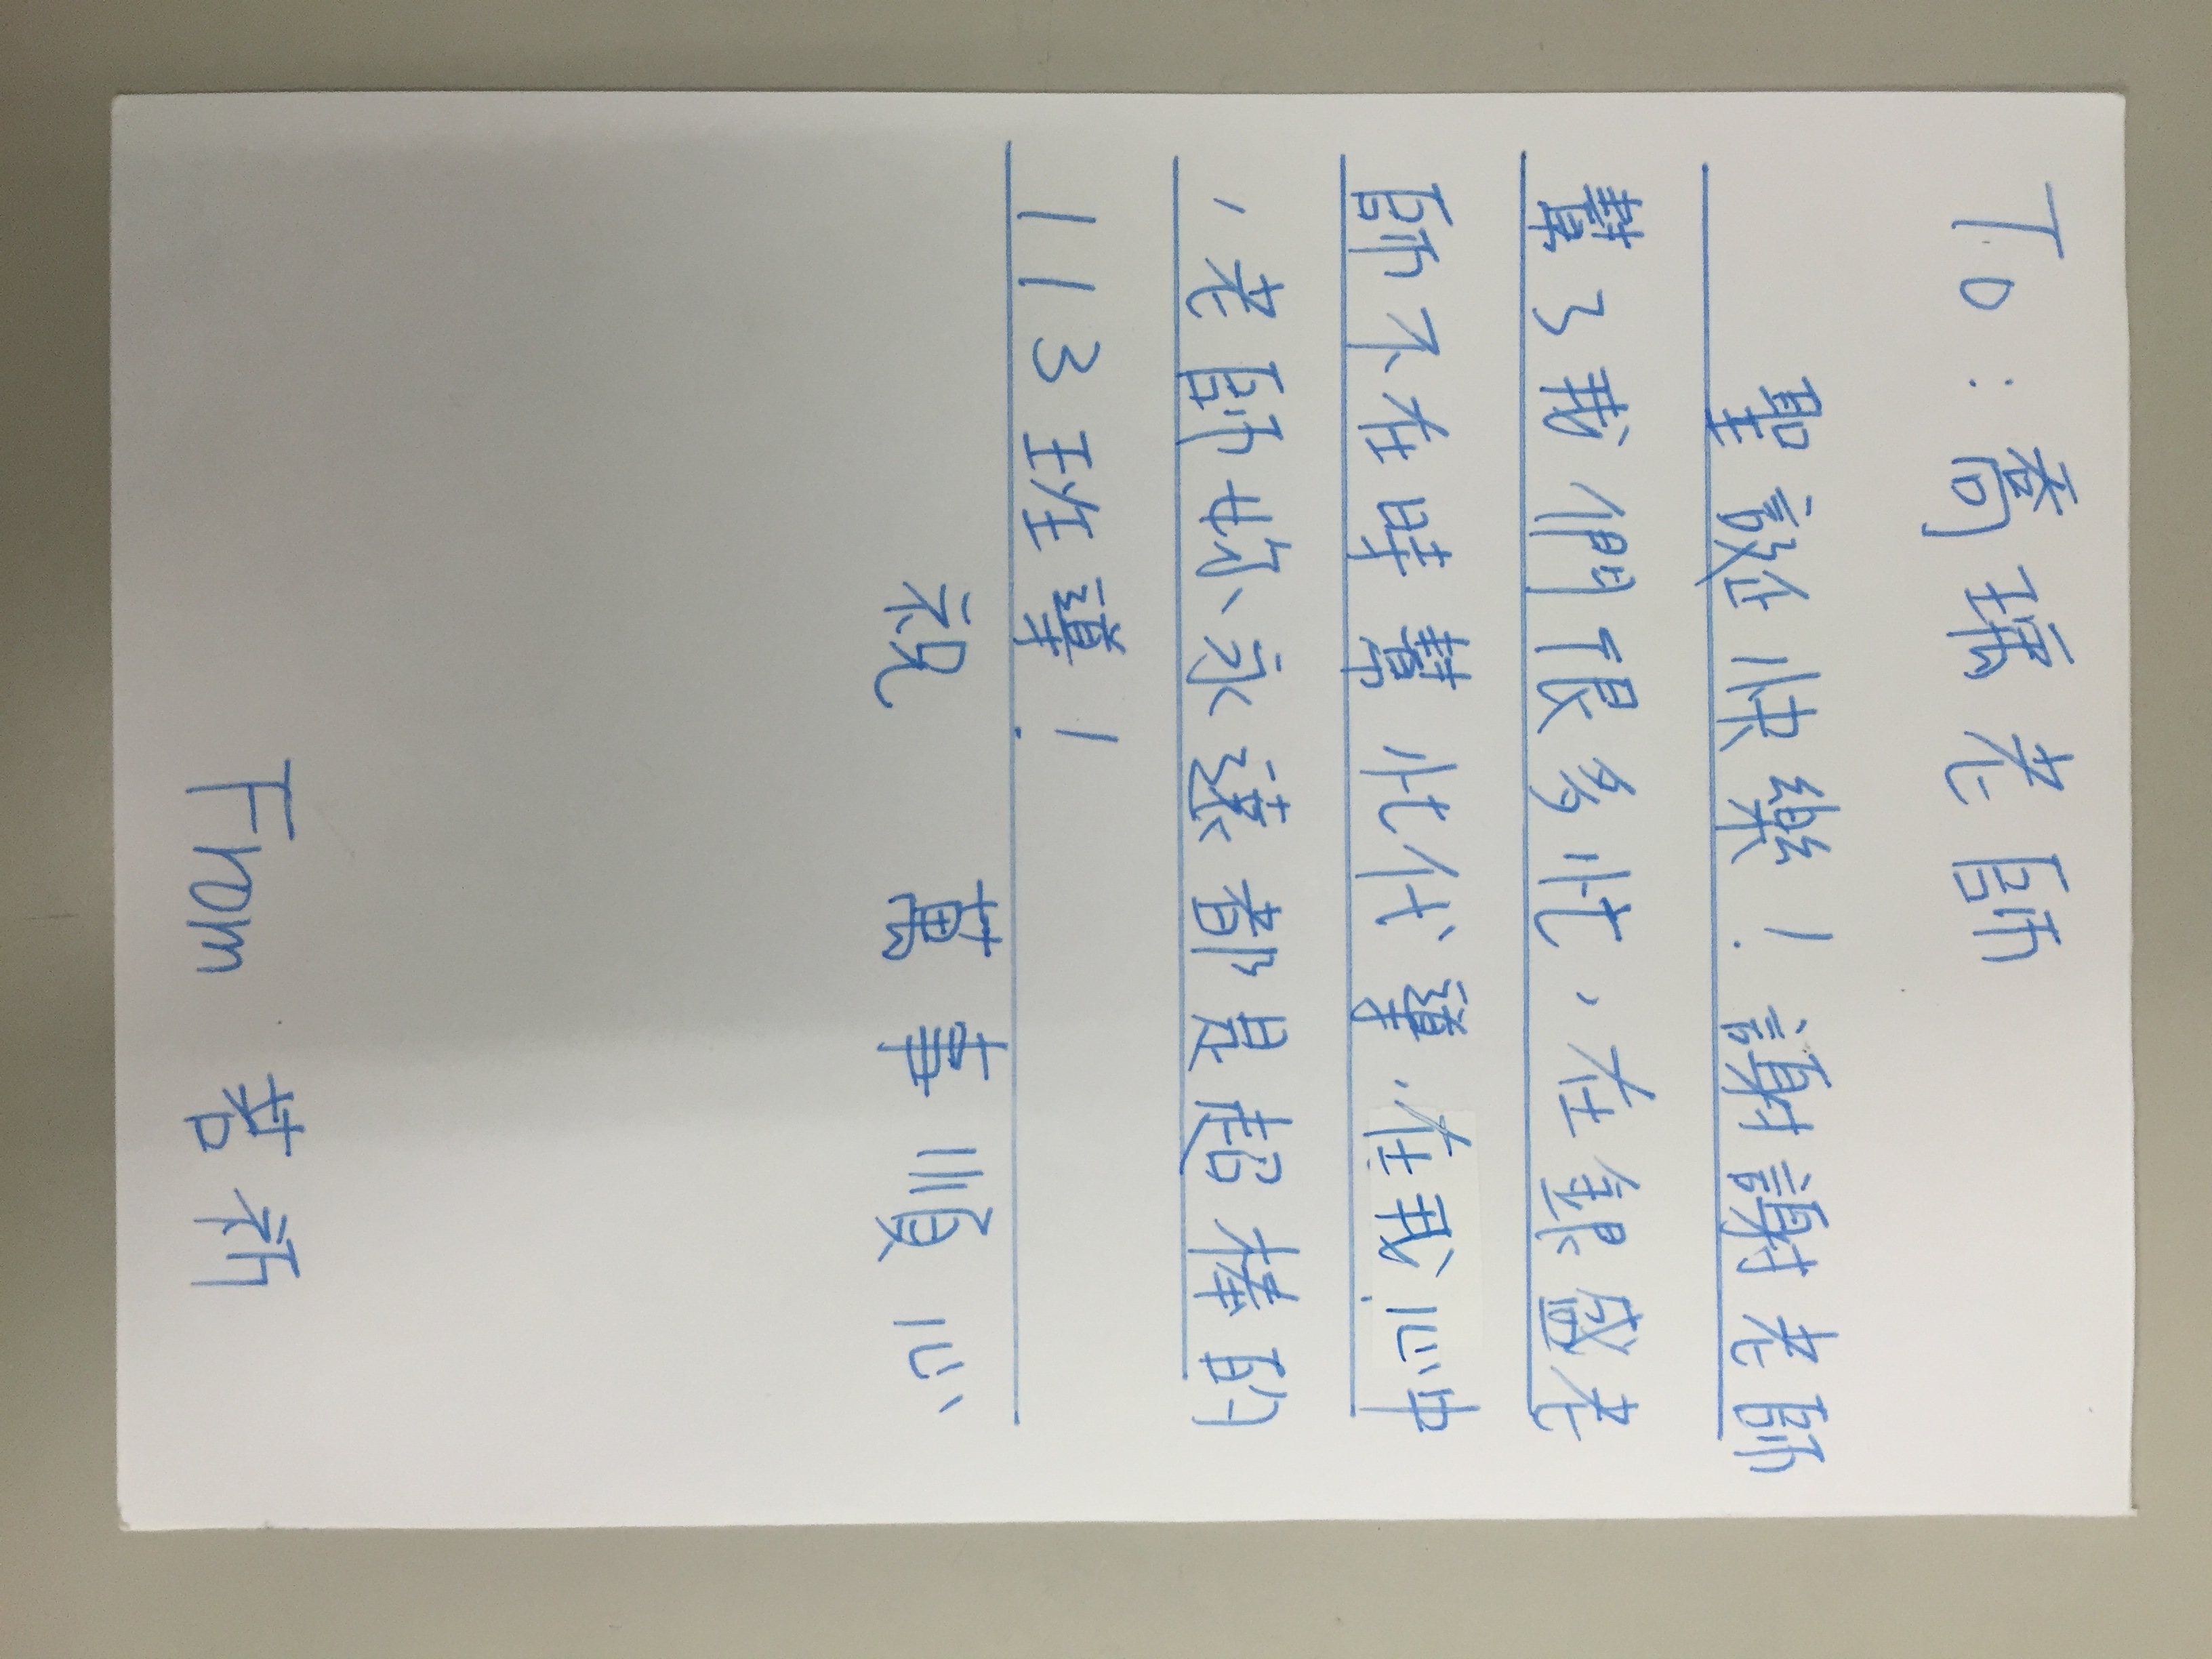 To:喬孺老師
聖誕快樂!謝謝老師
幫了我們很多忙,在銀盛老
師不在時幫忙代導,在我心中
,老師妳永遠都是超棒的
113班導!
祝 萬事順心
From 若祈